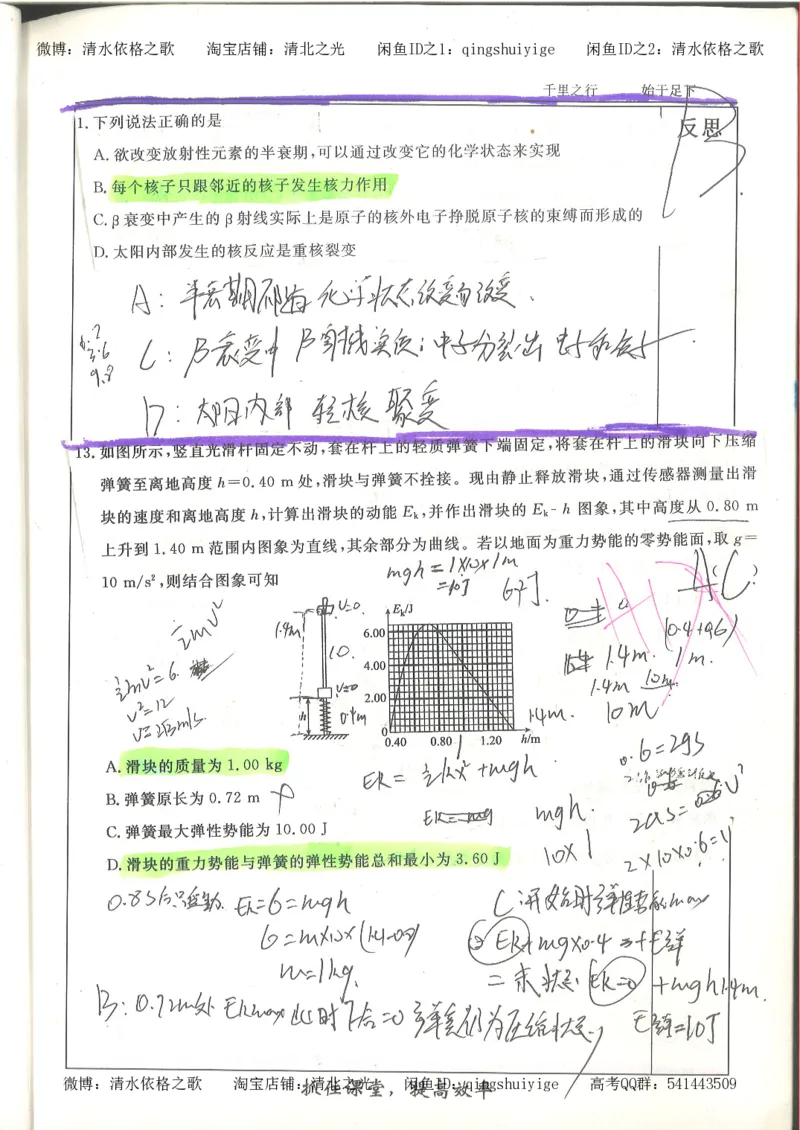 微博：清水依格之歌 淘宝店铺：清北之光 闲鱼ID之1：qingshuiyige 闲鱼ID之2：清水依格之歌
千里之行 始于足下
反思
1. 下列说法正确的是
A. 欲改变放射性元素的半衰期,可以通过改变它的化学状态来实现
B. 每个核子只跟邻近的核子发生核力作用
C. β衰变中产生的β射线实际上是原子的核外电子挣脱原子核的束缚而形成的
D. 太阳内部发生的核反应是重核裂变
A：半衰期不随化学状态改变而改变.
C：β衰变中β射线实质：中子分裂出电子和质子
D：太阳内部 轻核聚变
13. 如图所示,竖直光滑杆固定不动,套在杆上的轻质弹簧下端固定,将套在杆上的滑块向下压缩
弹簧至离地高度 h=0.40 m处,滑块与弹簧不拴接。现由静止释放滑块,通过传感器测量出滑
块的速度和离地高度 h,计算出滑块的动能 Ek,并作出滑块的 Ek-h 图象,其中高度从 0.80 m
上升到 1.40 m 范围内图象为直线,其余部分为曲线。若以地面为重力势能的零势能面,取 g=
10 m/s²,则结合图象可知
( )
C
mgh=1×10×1m
=10J
½mv²
½mv²=6
v²=12
1.4m
v=0
v=0
h
0.4m
Ek/J
6.00
4.00
2.00
0
0.40 0.80 1.20 h/m
1.4m.
(0.4+0.6)
1.4m. 1m.
1.4m 10m
10m
A. 滑块的质量为 1.00 kg
B. 弹簧原长为 0.72 m
C. 弹簧最大弹性势能为 10.00 J
D. 滑块的重力势能与弹簧的弹性势能总和最小为 3.60 J
Ek=½kx²+mgh
mgh.
10×1
2×10×0.6=v²
Ek=6=mgh
6=m×10×(1.4-0.8)
m=1kg.
C：开始时弹性势能max
Ek+mg×0.4+E弹
=末状态 Ek=0 +mgh1.4m.
E弹=10J
B：0.72m处 Ekmax 此时F合=0 弹簧仍为压缩状态,
微博：清水依格之歌 淘宝店铺：清北之光 闲鱼ID：qingshuiyige 高考QQ群：541443509
抓住课堂，提高效率